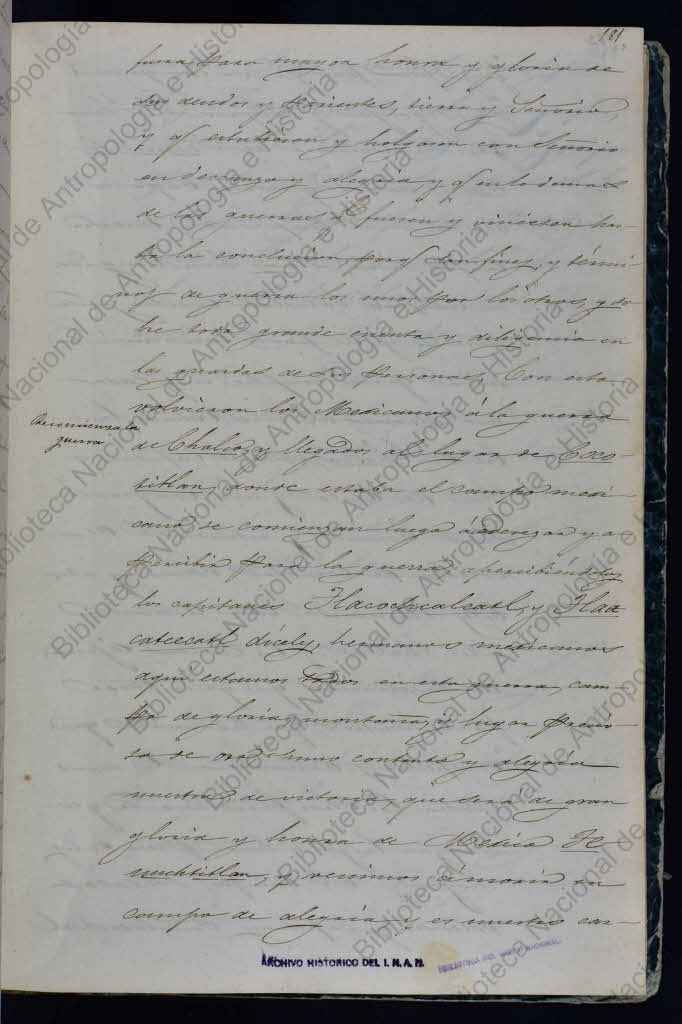 181
fuera para mayor honra y gloria de
sus deudos y parientes, tierra y Señorio,
y qᵉ estubieran y holgaran con Señorio
en descanso y alegria y qᵉ en lo demas
de las guerras, qᵉ fueran y viniesen has-
ta la conclusion, porqᵉ dan fines, y térmi-
nos de guerra los unos por los otros, y so-
bre todo grande cuenta y diligencia en
las guardas de sus personas. Con esto
volvieron los Mexicanos á la guerra
Recomienza la
guerra
de Chalco, y llegados al lugar de Coco-
titlan, donde estaba el campo mexi-
cano se comienzan luego á aderezar y a-
percibir para la guerra, apercibiéndoles
los capitanes Tlacochcalcatl, y Tlaca-
catecatl díceles, hermanos mexicanos
aqui estamos todos en esta guerra, cam-
po de gloria, montaña, y lugar precio-
so de oro, sumo contento y alegria
nuestra, de victoria, que será de gran
gloria y honra de Mexico Te-
nuchtitlan, y venimos á morir en
campo de alegria, y es nuestro
ARCHIVO HISTORICO DEL I. N. A. H.
Biblioteca Nacional de Antropología e Historia